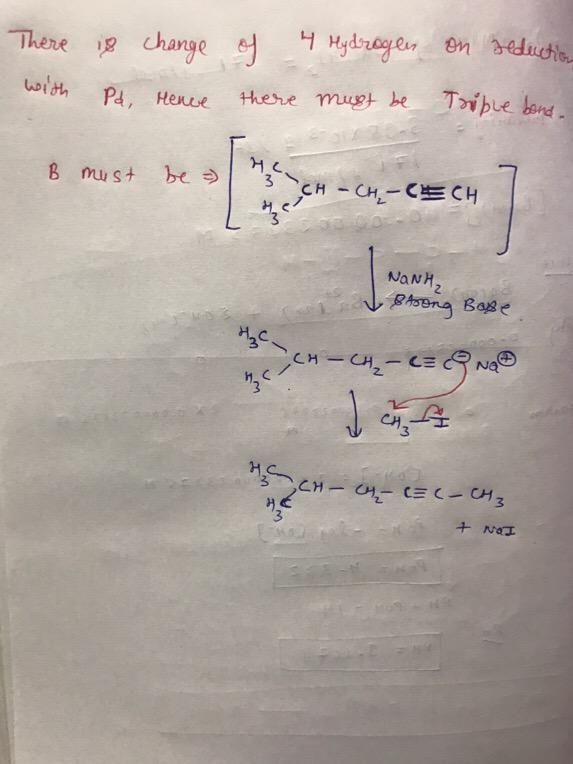 There is change of 4 Hydrogen on reduction
with Pd, Hence there must be Triple bond.
B must be ⇒ [ H3C H3C CH - CH2 - C≡CH ]
NaNH2
Strong Base
H3C H3C CH - CH2 - C≡C⊖ Na⊕
CH3-I
H3C H3C CH - CH2 - C≡C - CH3
+ NaI